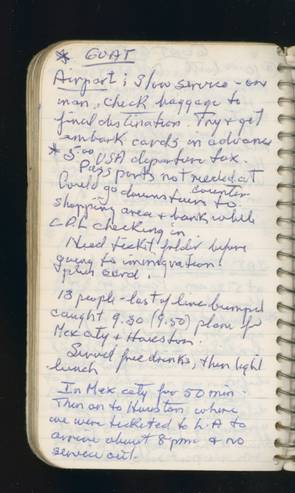 * GUAT
Airport: Slow service - one
man, check baggage to
final destination. Try + get
embark cards in advance
* 5.00 USA departure tax.
Passports not needed at
counter
Could go downstairs to
shopping area + bank while
C.P.L checking in
Need tickt foldr before
going to immigration
plus card.
13 people - last of line bumped
caught 9.30 (9.50) plane for
Mex city + Houston.
Served free drinks, then light
lunch
In Mex city for 50 min.
Then on to Houston where
we were ticketed to L.A to
arrive about 8 pm + no
service out.